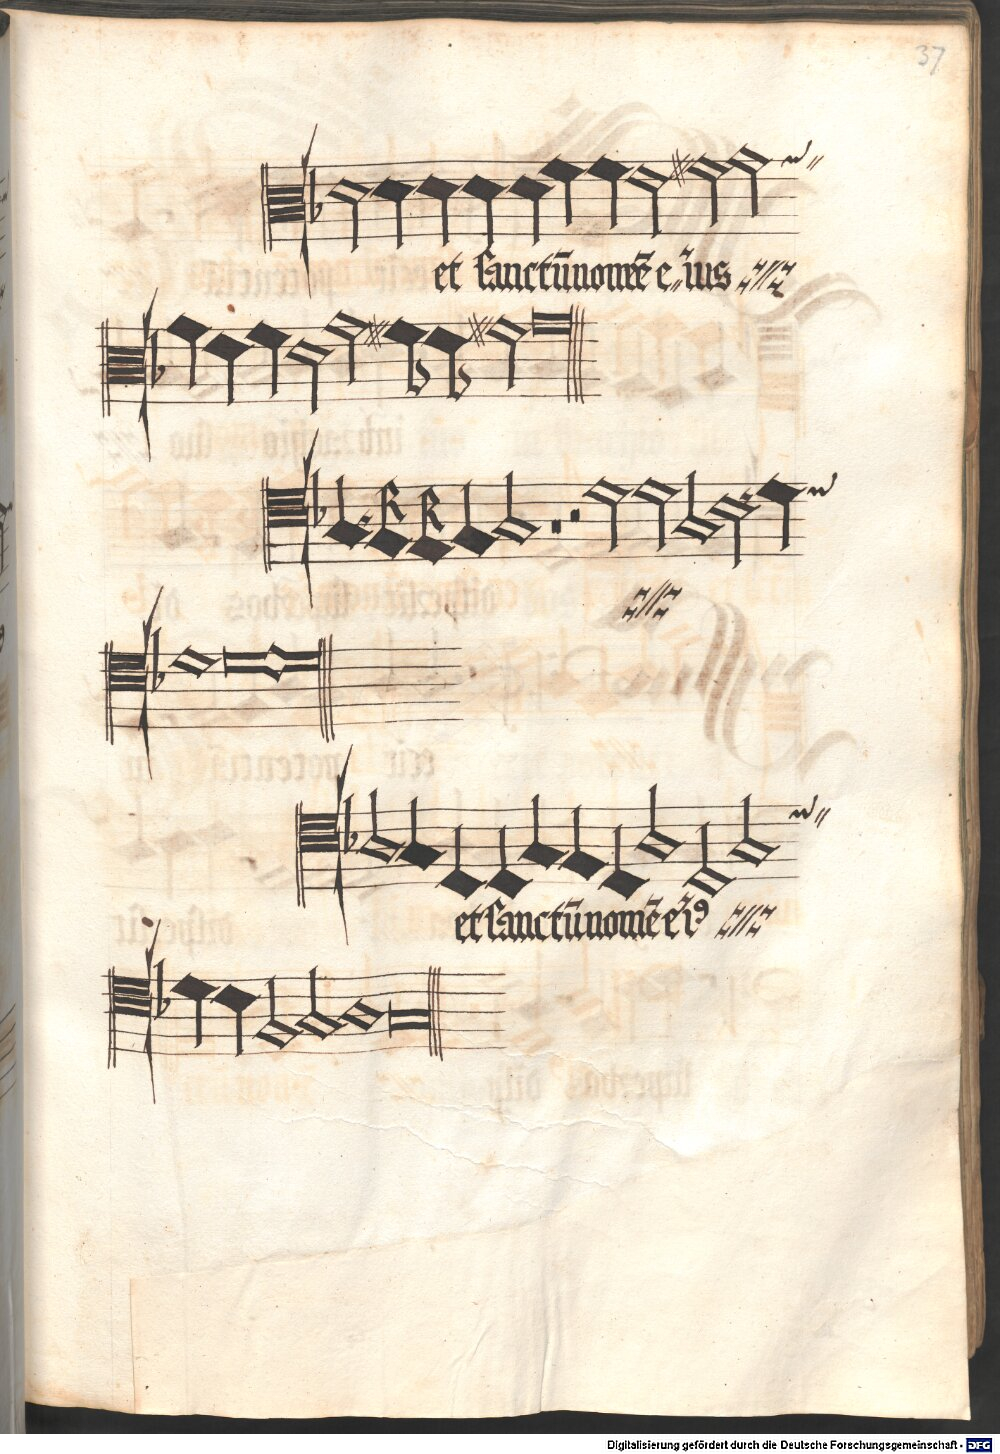 37
et sanctū nomē e ius
et sanctū nomē eiꝰ
Digitalisierung gefördert durch die Deutsche Forschungsgemeinschaft - DFG